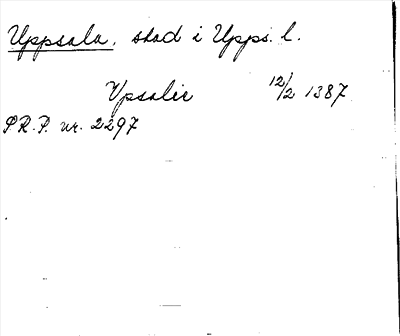 Uppsala, stad i Upps. l.
Vpsalie 12/2 1387
S.R.P. nr. 2297